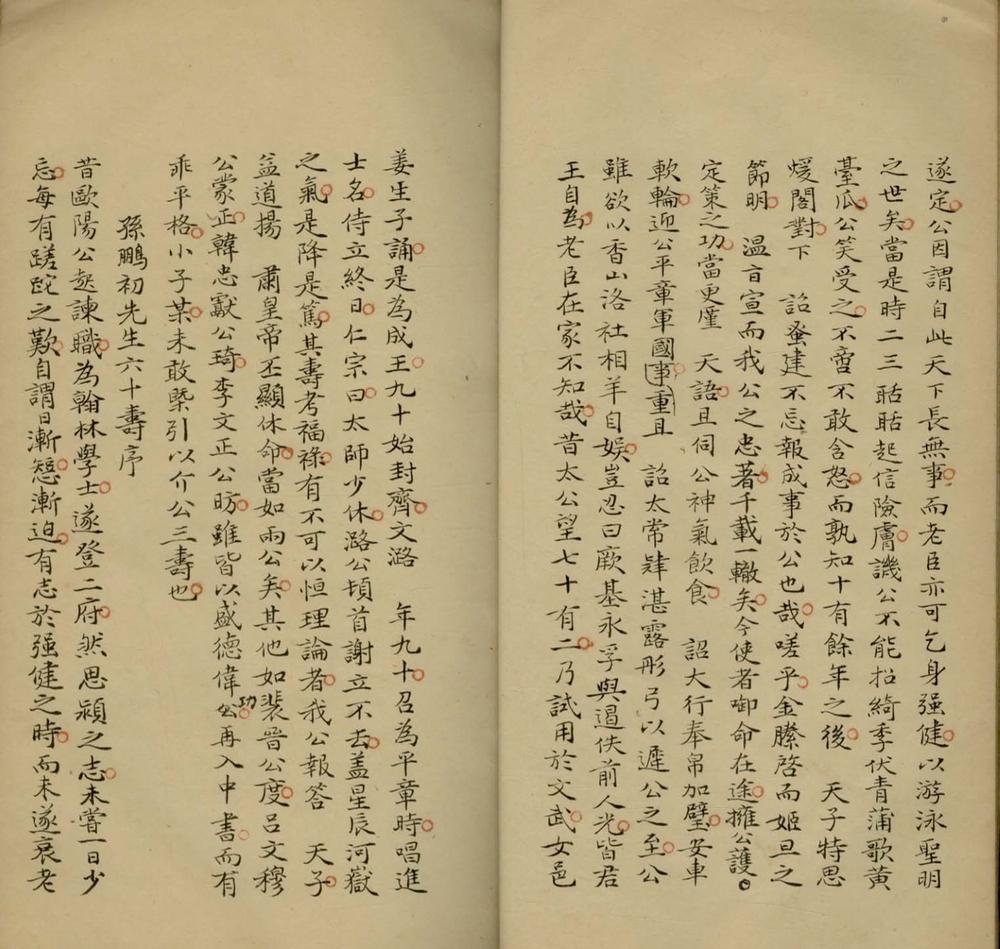 遂定公因謂自此天下長無事而老臣亦可乞身强健以游泳聖明
之世矣當是時二三聒聒起信險膚譏公不能招綺季伏青蒲歌黄
臺瓜公笑受之不啻不敢含怒而孰知十有餘年之後 天子特思
煖閣對下 詔蚤建不忘報成事於公也哉嗟乎金縢啓而姬旦之
節明 溫旨宣而我公之忠著千載一轍矣今使者啣命在途擁公護
定策之功當更廑 天語且伺公神氣飲食 詔大行奉帛加璧安車
軟輪迎公平章軍國事重且 詔太常肄湛露彤弓以遲公之至公
雖欲以香山洛社相羊自娛豈忍曰厥基永孚與遏佚前人光皆君
王自為老臣在家不知哉昔太公望七十有二乃試用於文武女邑
姜生子誦是為成王九十始封齊文潞 年九十召為平章時唱進
士名侍立終日仁宗曰太師少休潞公頓首謝立不去盖星辰河嶽
之氣是降是篤其壽考福祿有不可以恒理論者我公報答 天子
益道揚 肅皇帝丕顯休命當如兩公矣其他如裴晉公度呂文穆
公蒙正韓忠獻公琦李文正公昉雖皆以盛德偉功再入中書而有
乖平格小子某未敢槩引以介公三壽也
孫鵬初先生六十壽序
昔歐陽公起諫職為翰林學士遂登二府然思潁之志未嘗一日少
忘每有蹉跎之歎自謂日漸愆漸迫有志於强健之時而未遂衰老